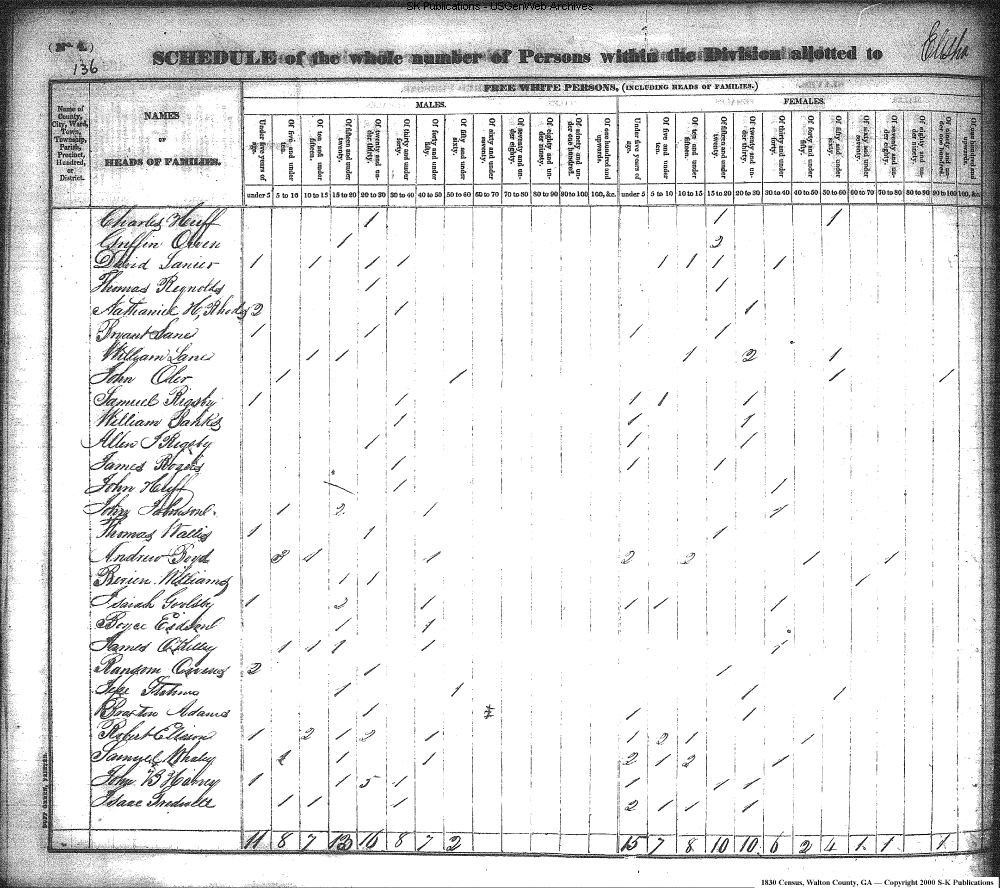 SK Publications - USGenWeb Archives
(No. 4.)
136
SCHEDULE of the whole number of Persons within the Division allotted to Elisha
FREE WHITE PERSONS, (INCLUDING HEADS OF FAMILIES.)
MALES. FEMALES.
Name of County, City, Ward, Town, Township, Parish, Precinct, Hundred, or District.
NAMES OF HEADS OF FAMILIES.
Under five years of age. Of five and under ten. Of ten and under fifteen. Of fifteen and under twenty. Of twenty and under thirty. Of thirty and under forty. Of forty and under fifty. Of fifty and under sixty. Of sixty and under seventy. Of seventy and under eighty. Of eighty and under ninety. Of ninety and under one hundred. Of one hundred and upwards. Under five years of age. Of five and under ten. Of ten and under fifteen. Of fifteen and under twenty. Of twenty and under thirty. Of thirty and under forty. Of forty and under fifty. Of fifty and under sixty. Of sixty and under seventy. Of seventy and under eighty. Of eighty and under ninety. Of ninety and under one hundred. Of one hundred and upwards.
under 5 5 to 10 10 to 15 15 to 20 20 to 30 30 to 40 40 to 50 50 to 60 60 to 70 70 to 80 80 to 90 90 to 100 100, &c. under 5 5 to 10 10 to 15 15 to 20 20 to 30 30 to 40 40 to 50 50 to 60 60 to 70 70 to 80 80 to 90 90 to 100 100, &c.
Charles Huff 1 1 1
Griffin Owen 1 2
David Lanier 1 1 1 1 1 1 1 1
Thomas Reynolds 1 1
Nathaniel H, Rhodes 2 1 1
Bryant Lane 1 1 1 1
William Lane 1 1 1 2 1
John Oler 1 1 1 1
Samuel Rigsby 1 1 1 1 1
William Banks 1 1 1
Allen J Rigsby 1 1 1
James Rogers 1 1 1
John Huff 1 1 1
John Johnson 1 2 1 1
Thomas Wallis 1 1 1
Andrew Boyd 3 1 1 2 2 1 1
Williams 1 1 1
Isaiah Goolsby 1 2 1 1 1 1
1 1
James O'Kelley 1 1 1 1 1
Ransom Owens 2 1 1
1 1 1 1
Adams 1 1 1
Robert Ellison 1 2 1 2 1 1 2 1 1
Samuel Whaley 1 1 1 2 1 2 1
John B Harvey 1 1 5 1 1 1 1
Isaac 1 1 1 2 1 1 1
11 8 7 13 16 8 7 2 15 7 8 10 10 6 2 4 1 1 1
DUFF GREEN, PRINTER.
1830 Census, Walton County, GA — Copyright 2000 S-K Publications